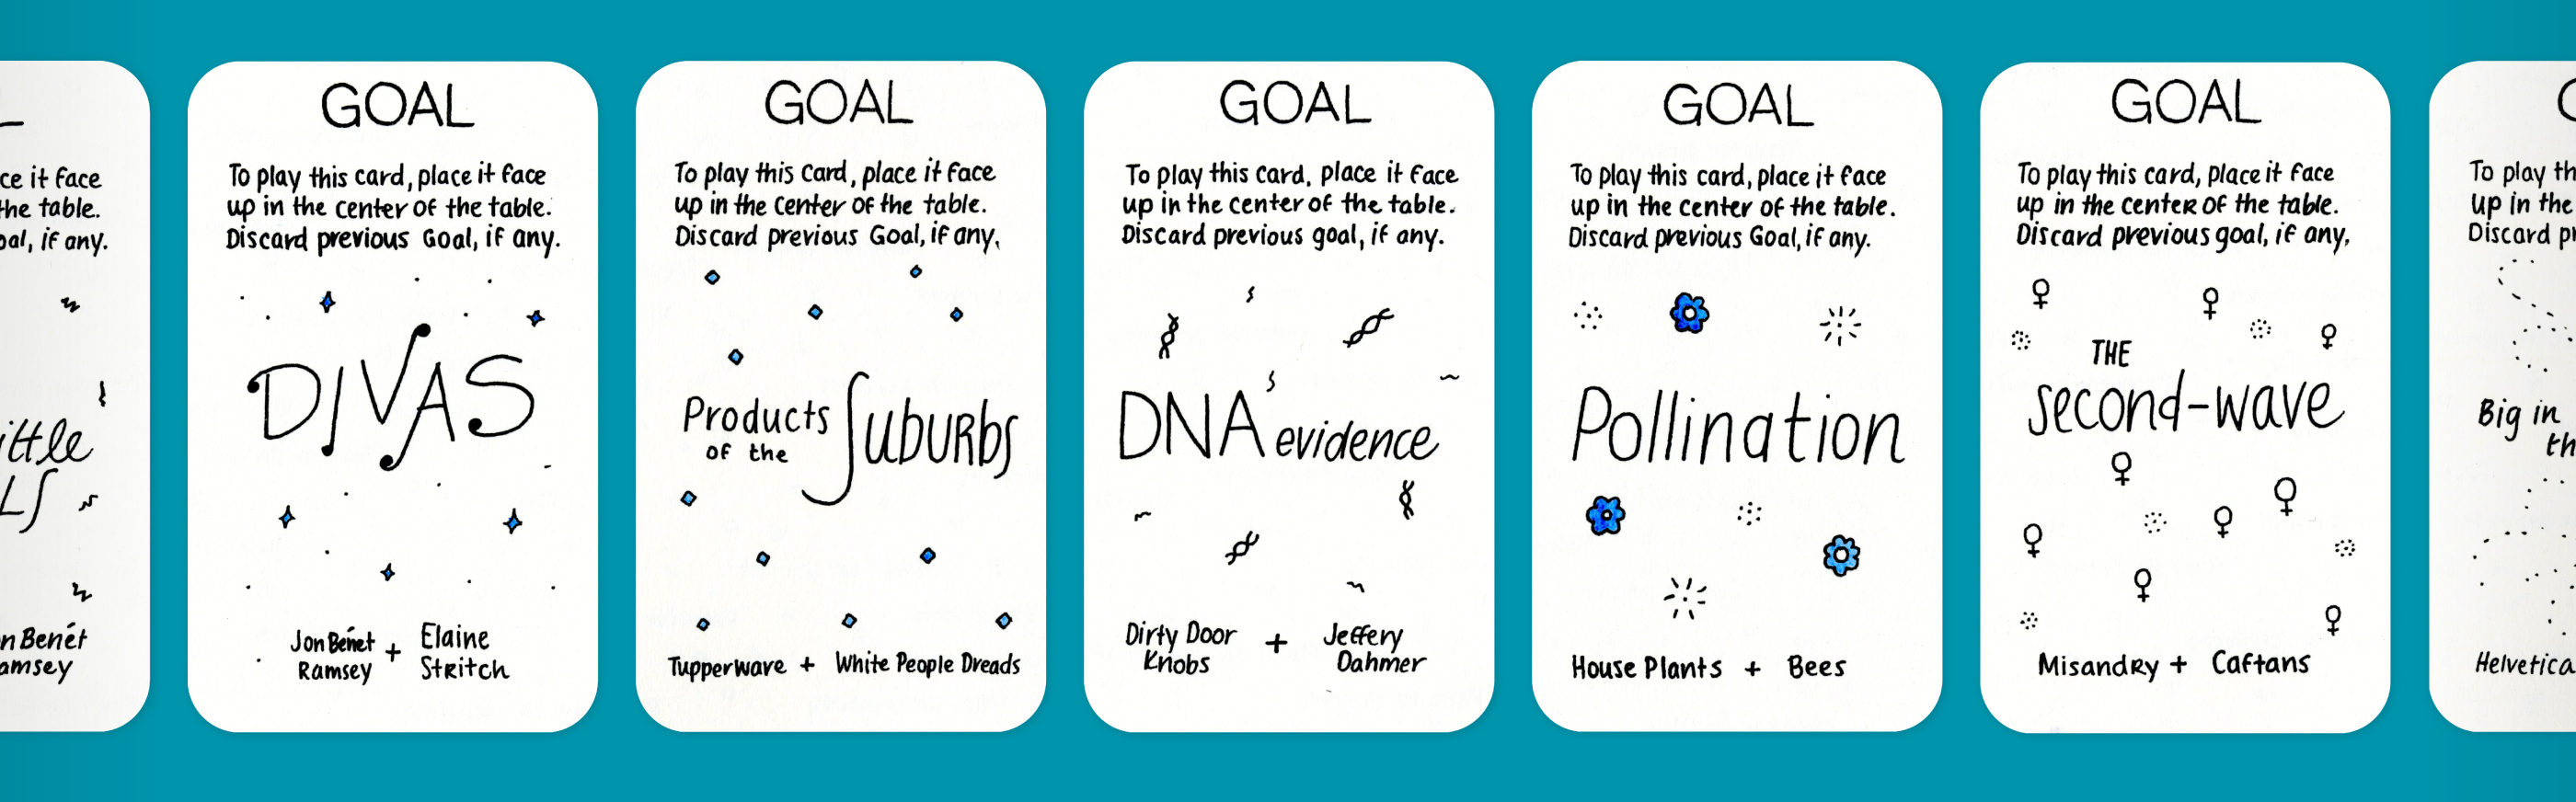 ce it face
the table.
oal, if any.
ittle
LS
n Benét
amsey
GOAL
To play this card, place it face
up in the center of the table.
Discard previous Goal, if any.
DIVAS
Jon Benét + Elaine
Ramsey Stritch
GOAL
To play this card, place it face
up in the center of the table.
Discard previous Goal, if any.
Products
of the Suburbs
Tupperware + White People Dreads
GOAL
To play this card, place it face
up in the center of the table.
Discard previous goal, if any.
DNA evidence
Dirty Door + Jeffery
Knobs Dahmer
GOAL
To play this card, place it face
up in the center of the table.
Discard previous Goal, if any.
Pollination
House Plants + Bees
GOAL
To play this card, place it face
up in the center of the table.
Discard previous goal, if any,
THE
second-wave
Misandry + Caftans
G
To play th
up in the
Discard pr
Big in
th
Helvetica